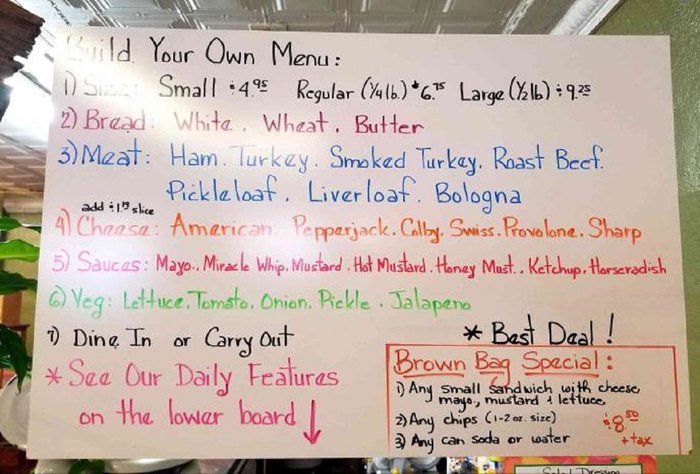 Build Your Own Menu:
1) Size: Small $4.95 Regular (1/4 lb) $6.75 Large (1/2 lb) $9.25
2) Bread: White. Wheat. Butter
3) Meat: Ham. Turkey. Smoked Turkey. Roast Beef.
Pickleloaf. Liverloaf. Bologna
add slice
4) Cheese: American. Pepperjack. Colby. Swiss. Provolone. Sharp
5) Sauces: Mayo.. Miracle Whip. Mustard. Hot Mustard. Honey Must.. Ketchup. Horseradish
6) Veg: Lettuce. Tomato. Onion. Pickle. Jalapeno
7) Dine In or Carry Out
* See Our Daily Features
on the lower board ↓
* Best Deal!
Brown Bag Special:
1) Any small sandwich with cheese
mayo, mustard & lettuce
2) Any chips (1-2 oz. size)
3) Any can soda or water
$8.50
+ tax
Salad Dressing